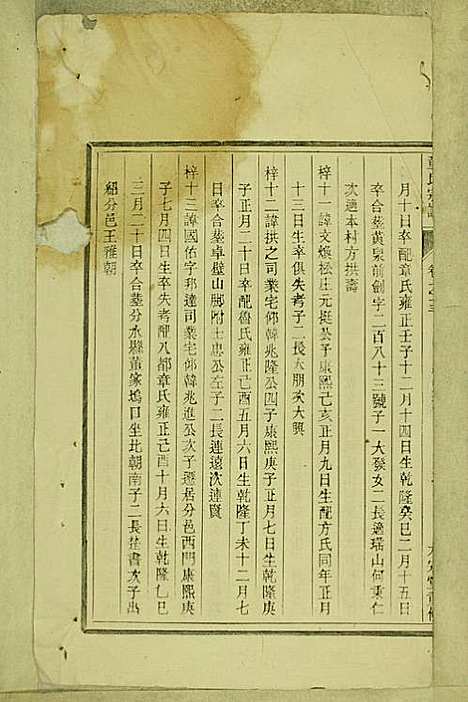 月十日卒配章氏雍正壬子十二月十四日生乾隆癸巳二月十五日
卒合塟黄泉前劍字二百八十三號子一大發女二長適瑤山何秉仁
次適本村方拱壽
梓十一諱文煥松庄元挺公子康熙己亥正月九日生配方氏同年正月
十三日生卒俱失考子二長大朋次大興
梓十二諱拱之司業宅仰韓兆隆公四子康熙庚子正月七日生乾隆庚
子正月二十日卒配魯氏雍正己酉五月六日生乾隆丁未十二月七
日卒合塟卓壁山脚附土忠公左子二長連遠次連賢
梓十三諱國佑字邦達司業宅仰韓兆進公次子遷居分邑西門康熙庚
子七月四日生卒失考配八都章氏雍正己酉十月六日生乾隆乙巳
三月二十日卒合塟分水縣董家塢口坐北朝南子二長楚書次子出
繼分邑王雅朝